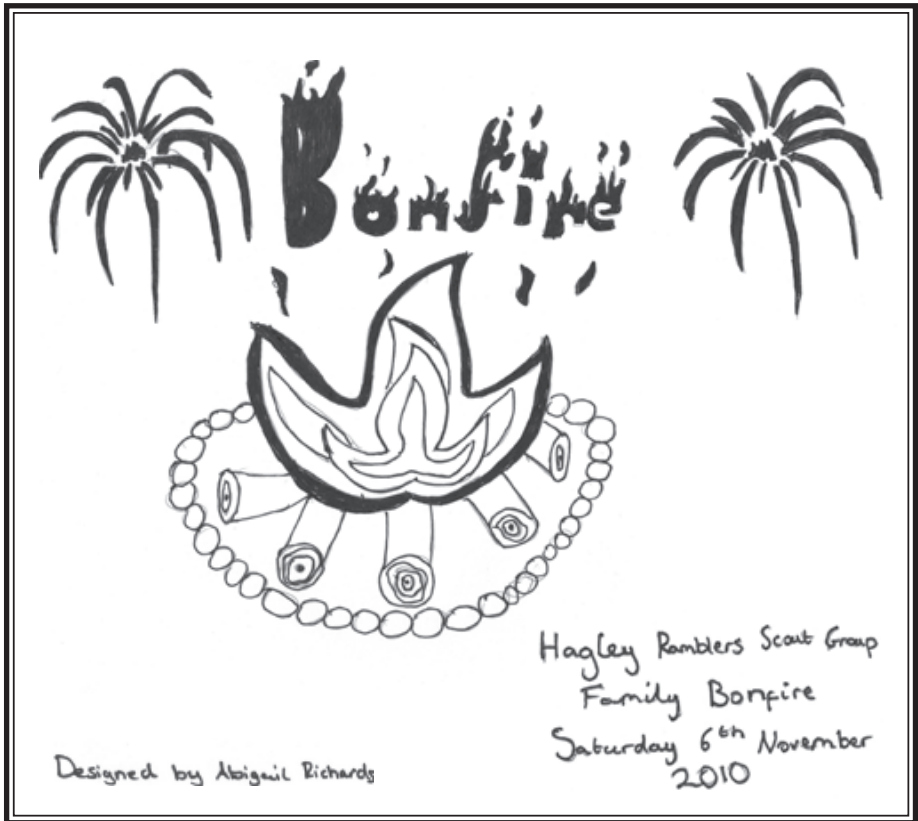 Bonfire
Hagley Ramblers Scout Group
Family Bonfire
Saturday 6th November
2010
Designed by Abigail Richards